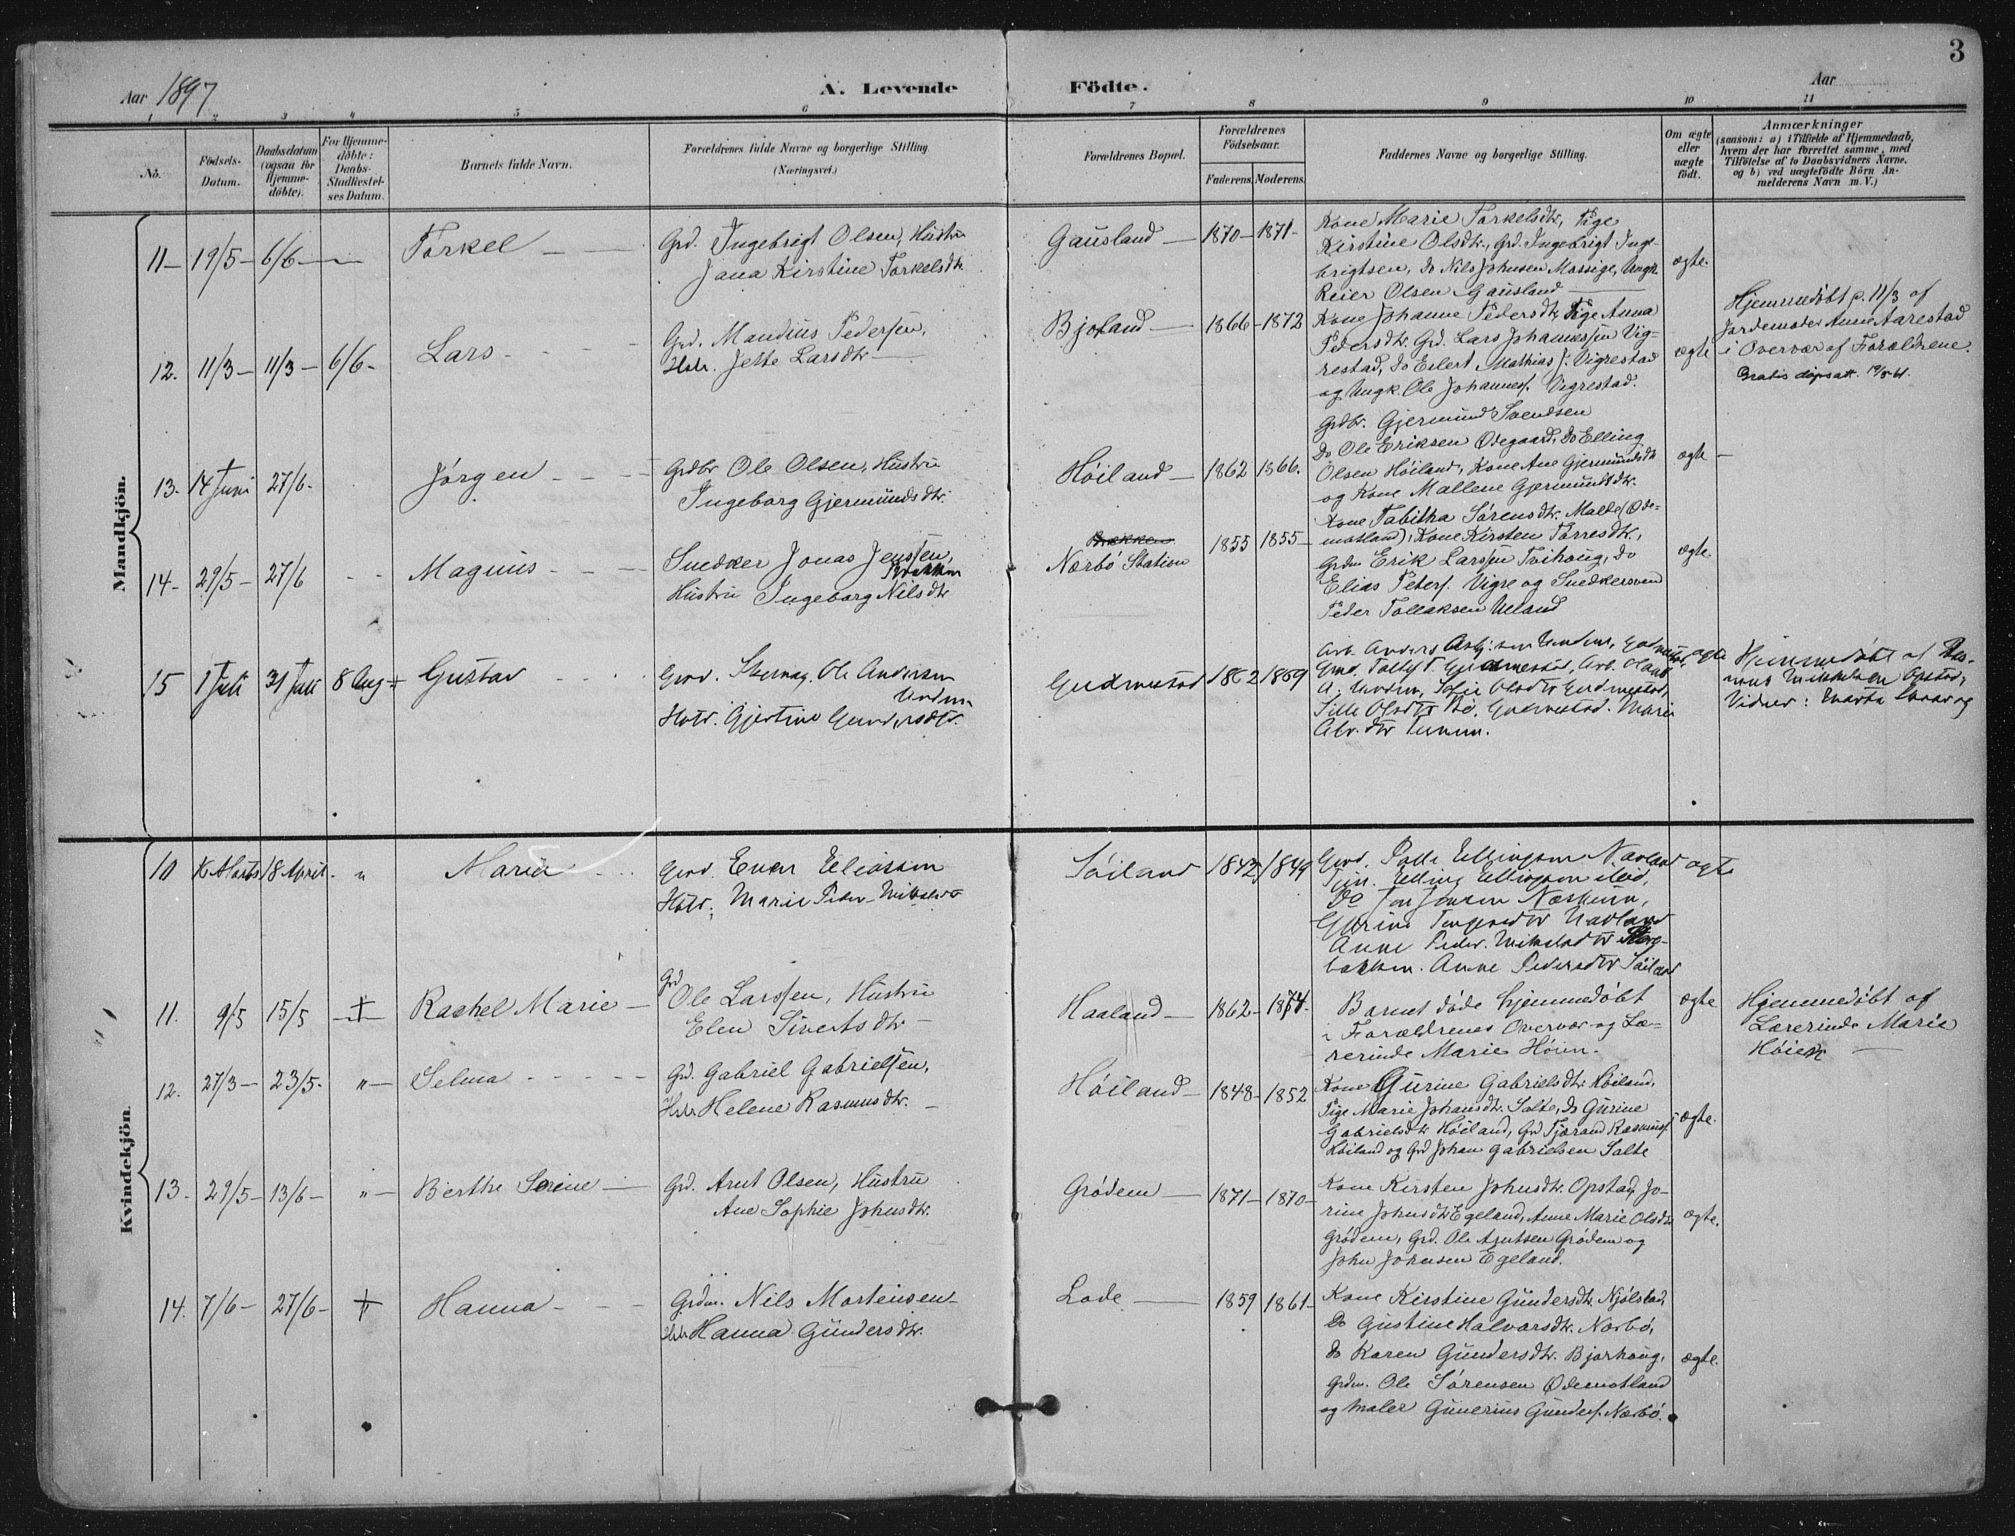 3
Aar 1897
A. Levende Födte.
Aar
1 2 3 4 5 6 7 8 9 10 11
No.
Födsels-Datum.
Daabsdatum (ogsaa for Hjemmedöbte).
For Hjemmedöbte: Daabs-Stadfæstelses Datum.
Barnets fulde Navn.
Forældrenes fulde Navne og borgerlige Stilling.
(Næringsvei.)
Forældrenes Bopæl.
Forældrenes Födselsaar.
Faderens. Moderens.
Faddernes Navne og borgerlige Stilling.
Om ægte eller uægte födt.
Anmærkninger
(saasom: a) i Tilfælde af Hjemmedaab, hvem der har forrettet samme, med Tilföielse af to Daabsvidners Navne, og b) ved uægtefödte Börn Anmelderens Navn m. V.)
Mandkjön.
11 – 19/5 – 6/6 –
Torkel
Grd. Ingebrigt Olsen, Hustru
Jana Kirstine Torkelsdtr.
Gausland – 1870 – 1871 –
Kone Marie Torkelsdtr, Pige
Kirstine Olsdtr., Grd. Ingebrigt Inge-
brigtsen, do Nils Johnsen Mossige, Ungk.
Reier Olsen Gausland
ægte.
12. 11/3 – 11/3 – 6/6 –
Lars
Grd. Mandius Pedersen,
Hstr. Jette Larsdtr.
Bjorland – 1866 – 1872
Kone Johanne Pedersdtr, Pige Anna
Pedersdtr. Grd. Lars Johannessen Vig-
restad, do Eilert Mathias J. Vigrestad
og Ungk. Ole Johannesf. Vigrestad.
ægte
Hjemmedøbt p. 11/3 af
Jordemoder Anne Aarestad
i Overvær af Forældrene.
Gratis dåpsatt. 19/5-61.
13. 14 Juni 27/6 –
Jørgen
Grdbr. Ole Olsen, Hustru
Ingeborg Gjermundsdtr.
Høiland – 1862 1866.
Grdbr. Gjermund Svendsen
Do Ole Eriksen Ødegaard, Do Elling
Olsen Høiland, Kone Ane Gjermundsdtr
og Kone Mallene Gjermundsdtr.
ægte –
14. – 29/5 – 27/6
Magnus
Snedker Jonas Jenssen,
Brækken
Hustru Ingeborg Nilsdtr
Brækken
Nærbø Station 1855 1855 –
Kone Tabitha Sørensdtr. Malde (Øde-
motland), Kone Kirsten Torresdtr.,
Grdm. Erik Larssen Tvihoug, do
Elias Petersf. Vigre og Snedkersvend
Peder Tollaksen Ueland
ægte.
15 1 Juli 31 Juli 8 Aug
Gustav
Grd. Ole Andersen
Hstr. Gjertine Gundersdtr.
Gudmestad 1862 1869
ægte
Hjemmedøbt af
Mikkelsen Opstad,
Kvindekjön.
10 18 April "
Maria
Grd. Even Eliassen
Hstr. Marie Peder-Mikalsdtr
Søiland 1842 1849
Grd. Elling Ellingsen
Do Jon Jonsen
Anne Peder.
Anne Pedersdtr Søiland
ægte
11. 9/5 15/5
Rachel Marie
Grd
Ole Larssen, Hustru
Elen Sivertsdtr
Haaland – 1862 – 1874.
Barnet døde hjemmedøbt
i Forældrenes Overvær og Læ-
rerinde Marie Høien.
ægte
Hjemmedøbt af
Lærerinde Marie
Høien
12. 27/3 – 23/5 – "
Selma
Grd. Gabriel Gabrielsen,
Hstr. Helene Rasmusdtr.
Høiland – 1848 – 1852
Kone Gurine Gabrielsdtr. Høiland,
Pige Marie Johansdtr. Salte, do Gurine
Gabrielsdtr Høiland, Grd Tjærand Rasmusf.
Høiland og Grd Johan Gabrielsen Salte
ægte.
13. 29/5 – 13/6 – "
Berthe Serine
Grd. Arnt Olsen, Hustru
Ane Sophie Johnsdtr.
Grødem – 1871 – 1870 –
Kone Kirsten Johnsdtr. Opstad, Jo-
rine Johnsdtr Egeland, Anne Marie Olsdtr
Grødem, Grd. Ole Arntsen Grødem og
John Johnsen Egeland.
ægte.
14. 7/6 – 27/6 –
Hanna
Grdm. Nils Mortensen
Hstr. Hanna Gundersdtr.
Lode – 1859 1861 –
Kone Kirstine Gundersdtr. Njølstad,
Do Gustine Halvorsdtr. Nærbø,
do Karen Gundersdtr. Bjorhoug,
Grdm. Ole Sørensen Ødemotland
og Maler Gunerius Gundersf. Nærbø.
ægte.